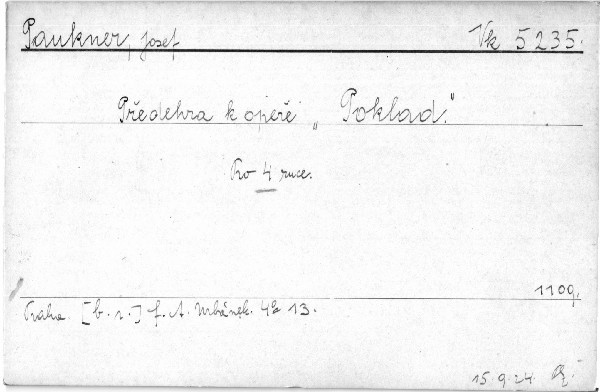 Paukner, Josef Vk 5235.
Předehra k opeře „Poklad."
Pro 4 ruce.
1109.
Praha [b. r.] f. A. Urbánek. 4° 13.
15.9.24